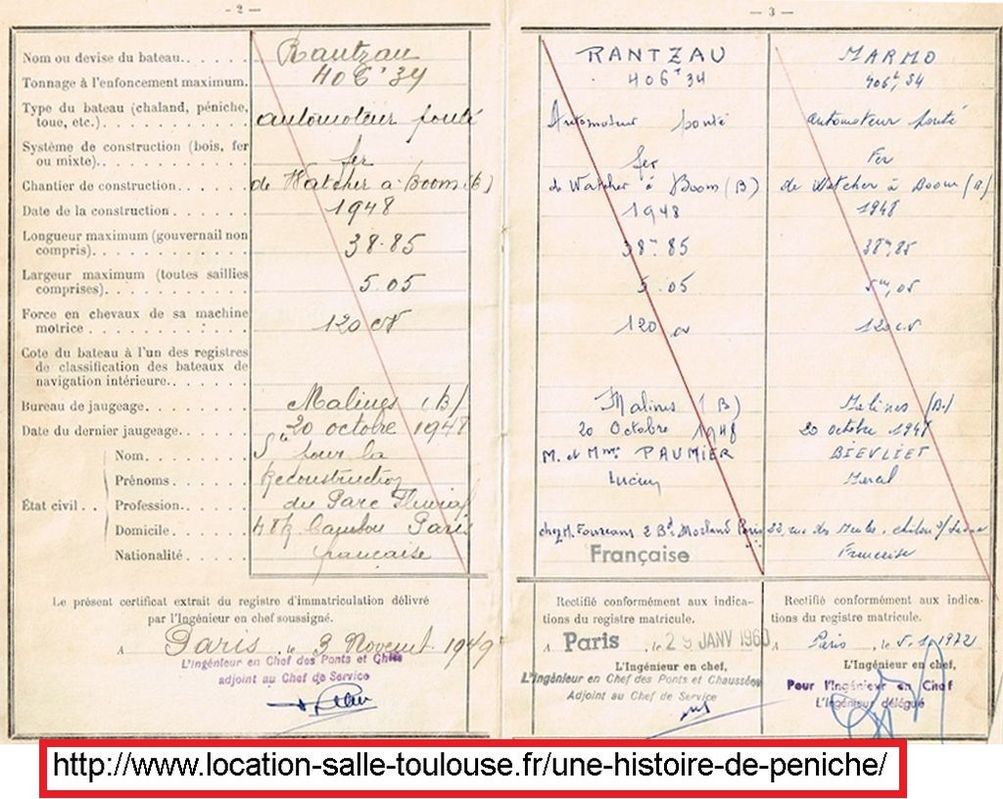 - 2 -
Nom ou devise du bateau. Rantzau
Tonnage à l'enfoncement maximum. 406 T 34
Type du bateau (chaland, péniche,
toue, etc.) automoteur ponté
Système de construction (bois, fer
ou mixte). fer
Chantier de construction de Watcher à Boom (B)
Date de la construction 1948
Longueur maximum (gouvernail non
compris). 38.85
Largeur maximum (toutes saillies
comprises). 5.05
Force en chevaux de sa machine
motrice 120 cv
Cote du bateau à l'un des registres
de classification des bateaux de
navigation intérieure.
Bureau de jaugeage. Malines (B)
Date du dernier jaugeage. 20 octobre 1948
État civil
Nom. pour la
Prénoms. Reconstruction
Profession. du Parc Fluvial
Domicile Paris
Nationalité française
Le présent certificat extrait du registre d'immatriculation délivré
par l'Ingénieur en chef soussigné.
A Paris, le 3 Novembre 1949
L'Ingénieur en Chef des Ponts et Ch
adjoint au Chef de Service
- 3 -
RANTZAU
406 T 34
Automoteur ponté
fer
de Watcher à Boom (B)
1948
38 m 85
5.05
120 cv
Malines (B)
20 Octobre 1948
M. et Mme PAUMIER
Lucien
chez M. 2 Bd Morland Paris
Française
Rectifié conformément aux indica-
tions du registre matricule.
A Paris, le 29 JANV 1960
L'Ingénieur en chef,
L'Ingénieur en Chef des Ponts et Chaussées
Adjoint au Chef de Service
MARMO
406 t, 34
automoteur ponté
Fer
de Watcher à Boom (B)
1948
38 m, 85
5 m, 05
120 cv
Malines (B)
20 octobre 1948
BIEVLIET
Marcel
22, rue des
Française
Rectifié conformément aux indica-
tions du registre matricule.
A Paris, le 5.1.1972
L'Ingénieur en chef,
Pour l'Ingénieur en Chef
L'Ingénieur délégué
http://www.location-salle-toulouse.fr/une-histoire-de-peniche/